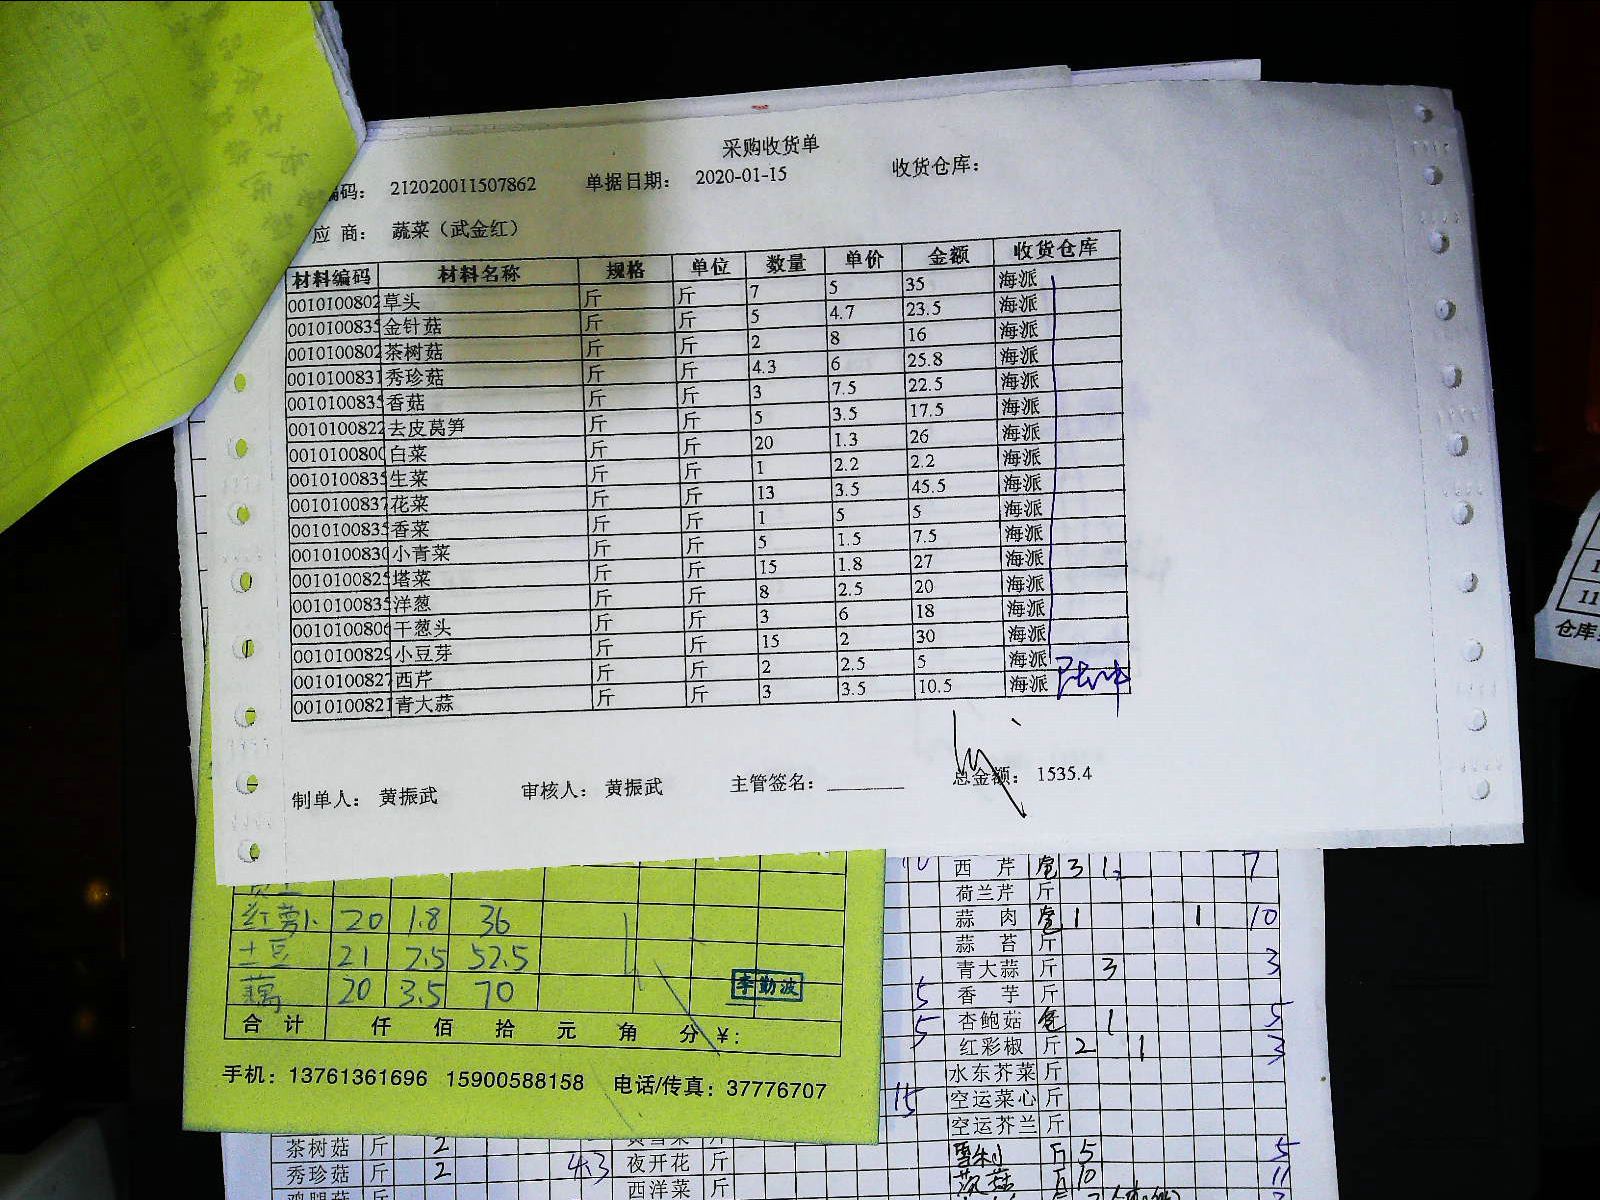 采购收货单
编码： 212020011507862 单据日期： 2020-01-15 收货仓库：
应 商： 蔬菜（武金红）
材料编码 材料名称 规格 单位 数量 单价 金额 收货仓库
0010100802 草头 斤 斤 7 5 35 海派
0010100835 金针菇 斤 斤 5 4.7 23.5 海派
0010100802 茶树菇 斤 斤 2 8 16 海派
0010100831 秀珍菇 斤 斤 4.3 6 25.8 海派
0010100835 香菇 斤 斤 3 7.5 22.5 海派
0010100822 去皮莴笋 斤 斤 5 3.5 17.5 海派
0010100800 白菜 斤 斤 20 1.3 26 海派
0010100835 生菜 斤 斤 1 2.2 2.2 海派
0010100837 花菜 斤 斤 13 3.5 45.5 海派
0010100835 香菜 斤 斤 1 5 5 海派
0010100830 小青菜 斤 斤 5 1.5 7.5 海派
0010100825 塔菜 斤 斤 15 1.8 27 海派
0010100835 洋葱 斤 斤 8 2.5 20 海派
0010100806 干葱头 斤 斤 3 6 18 海派
0010100829 小豆芽 斤 斤 15 2 30 海派
0010100827 西芹 斤 斤 2 2.5 5 海派
0010100821 青大蒜 斤 斤 3 3.5 10.5 海派
制单人： 黄振武 审核人： 黄振武 主管签名： 总金额： 1535.4
红萝卜 20 1.8 36
土豆 21 2.5 52.5
藕 20 3.5 70
李勤波
合 计 仟 佰 拾 元 角 分 ¥：
手机：13761361696 15900588158 电话/传真：37776707
10 西 芹 3 1 7
荷兰芹 斤
蒜 肉 1 1 10
蒜 苔 斤
青大蒜 斤 3 3
5 香 芋 斤
5 杏鲍菇 1 5
红彩椒 斤 2 1 3
水东芥菜 斤
15 空运菜心 斤
空运芥兰 斤
茶树菇 斤 2
5 5
秀珍菇 斤 2 4.3 夜开花 斤
10 11
西洋菜 斤
11
仓库